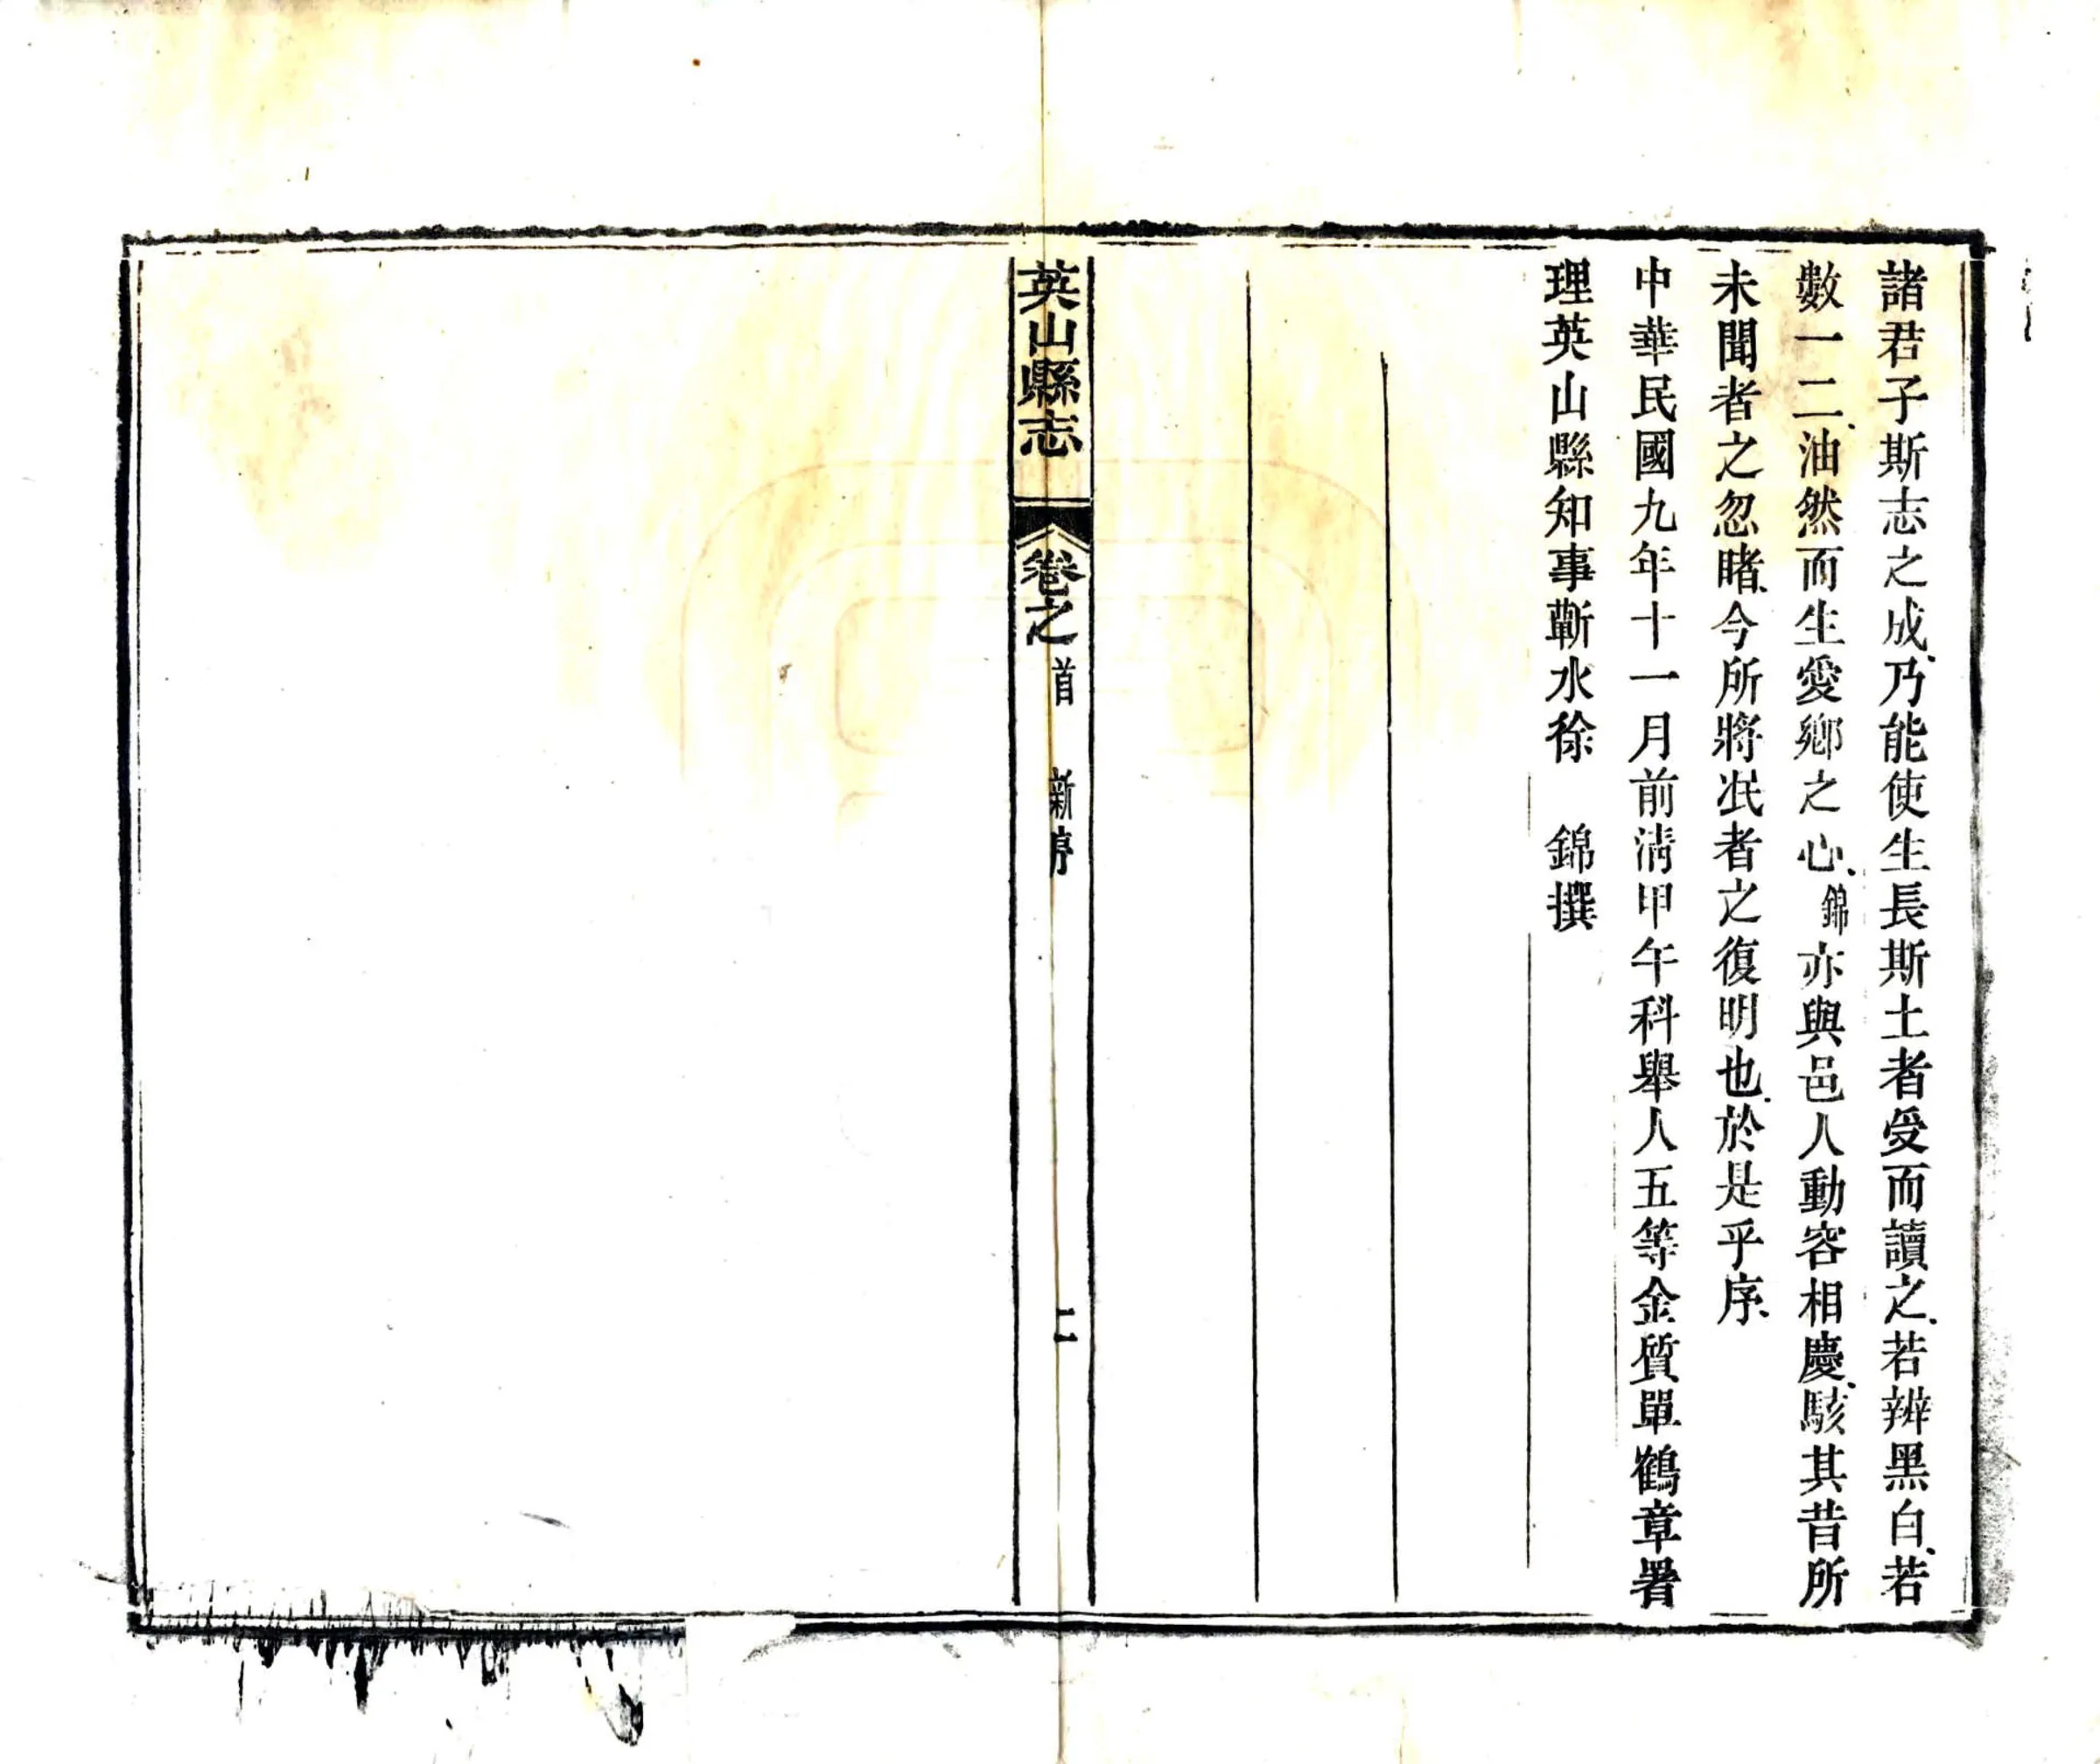 諸君子斯志之成、乃能使生長斯土者受而讀之、若辨黑白、若
數一二、油然而生愛鄉之心、錦亦與邑人動容相慶、駭其昔所
未聞者之忽睹、今所將泯者之復明也、於是乎序、
中華民國九年十一月前淸甲午科舉人五等金質單鶴章署
理英山縣知事蘄水徐　錦撰
英山縣志　卷之首　新序　二